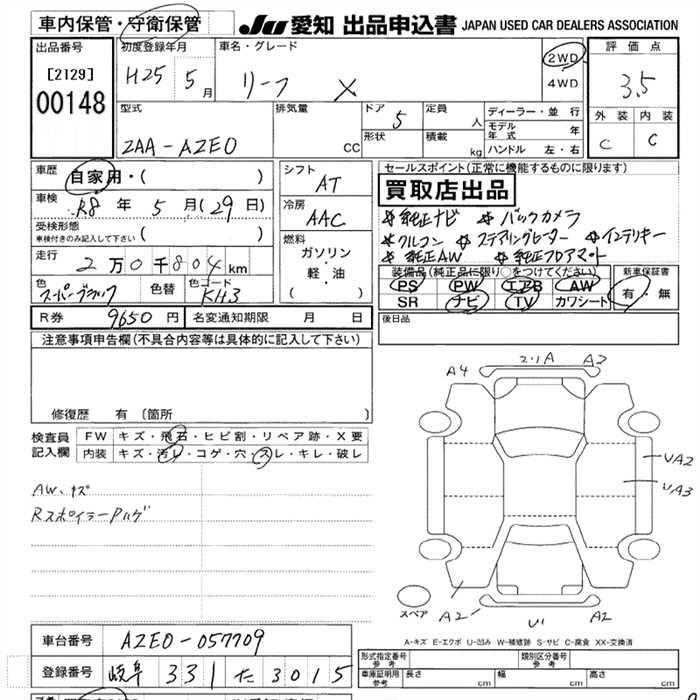 車内保管・守衛保管
JU 愛知 出品申込書 JAPAN USED CAR DEALERS ASSOCIATION
出品番号
[2129]
00148
初度登録年月
H25 5月
車名・グレード
リーフ X
2WD
4WD
評価点
3.5
外装 内装
C C
型式
ZAA-AZE0
排気量
CC
ドア 5
形状
定員 人
積載 kg
ディーラー・並行
モデル年式 年
ハンドル 左・右
車歴
自家用・( )
車検
R8年5月(29日)
受検形態
車検付きのみ記入して下さい ( )
走行
2万0千804km
色
スーパーブラック
色替
色コード
KH3
シフト
AT
冷房
AAC
燃料
ガソリン
軽・油
( )
セールスポイント(正常に機能するものに限ります)
買取店出品
☆純正ナビ ☆バックカメラ
☆クルコン ☆ステアリングヒーター ☆インテリキー
☆純正AW ☆純正フロアマット
装備品(純正品に限り○をつけてください)
PS PW エアB AW
SR ナビ TV カワシート
新車保証書
有・無
後日品
R券 9650円
名変通知期限 月 日
注意事項申告欄(不具合内容等は具体的に記入して下さい)
修復歴 有 〔箇所 〕
検査員記入欄
FW キズ・飛石・ヒビ割・リペア跡・X要
内装 キズ・汚レ・コゲ・穴・スレ・キレ・破レ
AW、キズ
Rスポイラー Pハゲ
A4
2・1A
A2
UA2
UA3
スペア
A2
U1
A2
A-キズ E-エクボ U-凹み W-補修跡 S-サビ C-腐食 XX-交換済
車台番号 AZE0-057709
登録番号 岐阜 331 た 3015
形式指定番号
参考
類別区分番号
参考
車庫証明用
参考
長さ cm
幅 cm
高さ cm